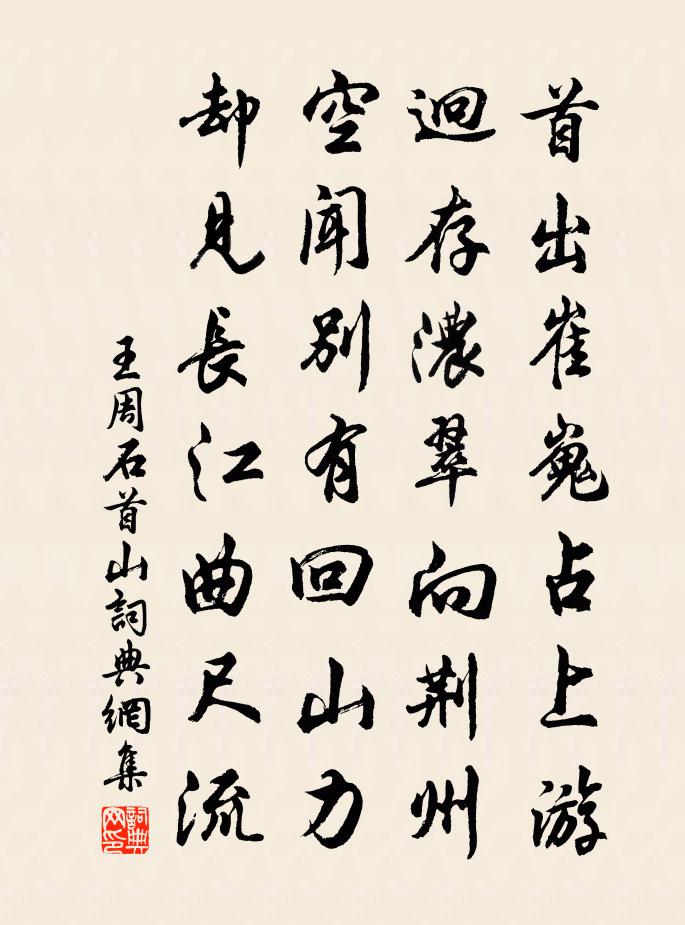 首出崔嵬占上游
迥存濃翠向荆州
空闻別有回山力
却見長江曲尺流
王周石首山詞典網集
詞典网印